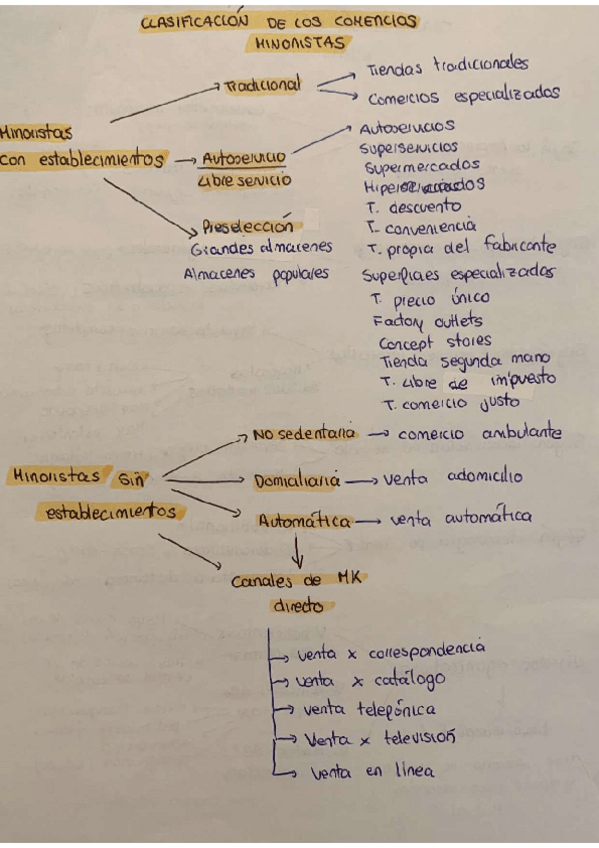 CLASIFICACIÓN DE LOS COMERCIOS
MINORISTAS
Minoristas
con establecimientos
Tradicional
Tiendas tradicionales
Comercios especializados
Autoservicio
Libre servicio
Autoservicios
Superservicios
Supermercados
T. descuento
T. conveniencia
T. propia del fabricante
Superficies especializados
T. precio único
Factory outlets
Concept stores
Tienda segunda mano
T. Libre de impuesto
T. comercio justo
Preselección
Grandes almacenes
Almacenes populares
Minoristas sin
establecimientos
No sedentaria → comercio ambulante
Domiciliaria → venta adomicilio
Automática → venta automática
Canales de MK
directo
→ venta x correspondencia
→ venta x catálogo
→ venta telefónica
→ Venta x televisión
→ venta en línea